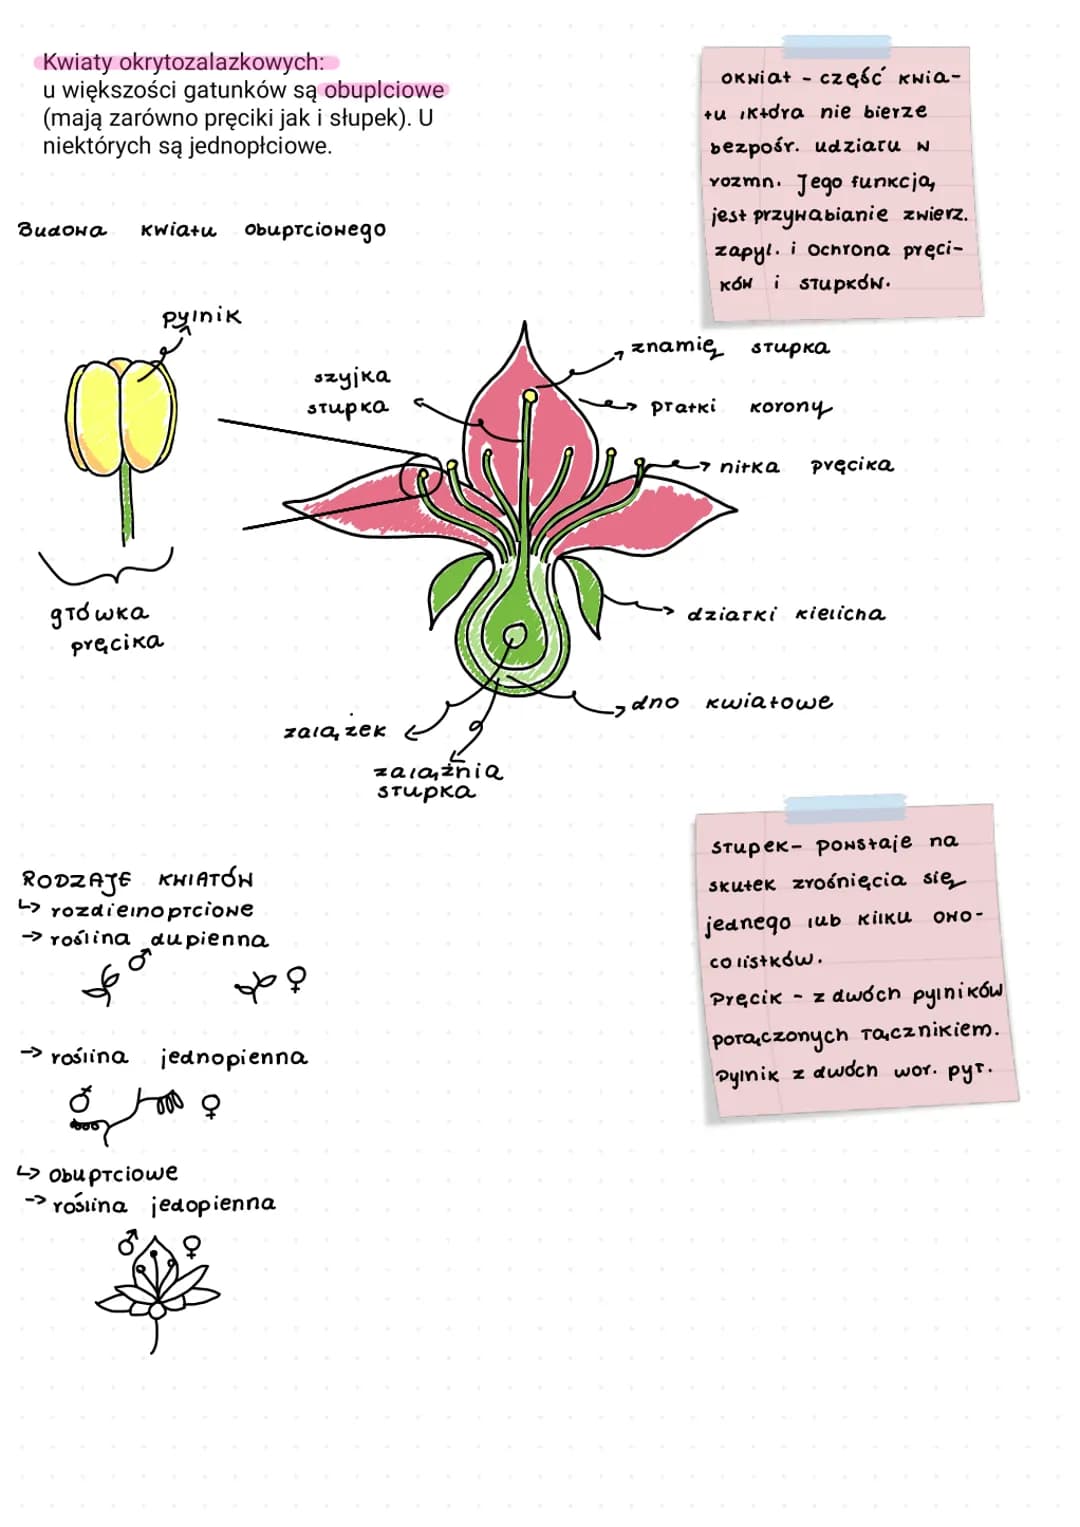 Kwiaty okrytozalazkowych:
u większości gatunków są obuplciowe
(mają zarówno pręciki jak i słupek). U
niektórych są jednopłciowe.
okwiat - część kwia-
tu, która nie bierze
bezpośr. udziału w
rozmn. Jego funkcją,
jest przywabianie zwierz.
zapyl. i ochrona pręci-
ków i słupków.
Budowa kwiatu obupłciowego
pylnik
szyjka
słupka
znamię słupka
płatki korony
nitka pręcika
główka
pręcika
działki kielicha
dno kwiatowe
zalążek
zalążnia
słupka
RODZAJE KWIATÓW
↳ rozdielnopłciowe
→ roślina dupienna
♂ ♀
→ roślina jednopienna
♂ ♀
↳ obupłciowe
→ roślina jedopienna
♂ ♀
słupek- powstaje na
skutek zrośnięcia się
jednego lub kilku owo-
colistków.
Pręcik - z dwóch pylników
połączonych łącznikiem.
Pylnik z dwóch wor. pył.